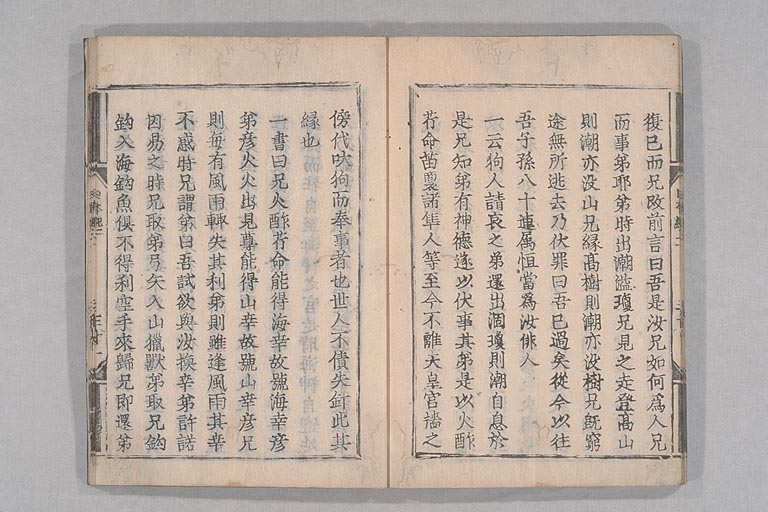 復已而兄改前言曰吾是汝兄如何為人兄
而事弟耶弟時出潮溢瓊兄見之走登高山
則潮亦没山兄縁高樹則潮亦没樹兄既窮
途無所逃去乃伏罪曰吾已過矣從今以往
吾子孫八十連属恒當為汝俳人
一云狗人請哀之弟還出涸瓊則潮自息於
是兄知弟有神德遂以伏事其弟是以火酢
芹命苗裔諸隼人等至今不離天皇宮墻之
傍代吠狗而奉事者也世人不債失針此其
縁也
一書曰兄火酢芹命能得海幸故號海幸彦
弟彦火火出見尊能得山幸故號山幸彦兄
則毎有風雨輙失其利弟則雖逢風雨其幸
不惑時兄謂弟曰吾試欲與汝換幸弟許諾
因易之時兄取弟弓矢入山獵獸弟取兄鈎
鈎入海鈎魚倶不得利空手來歸兄即還弟